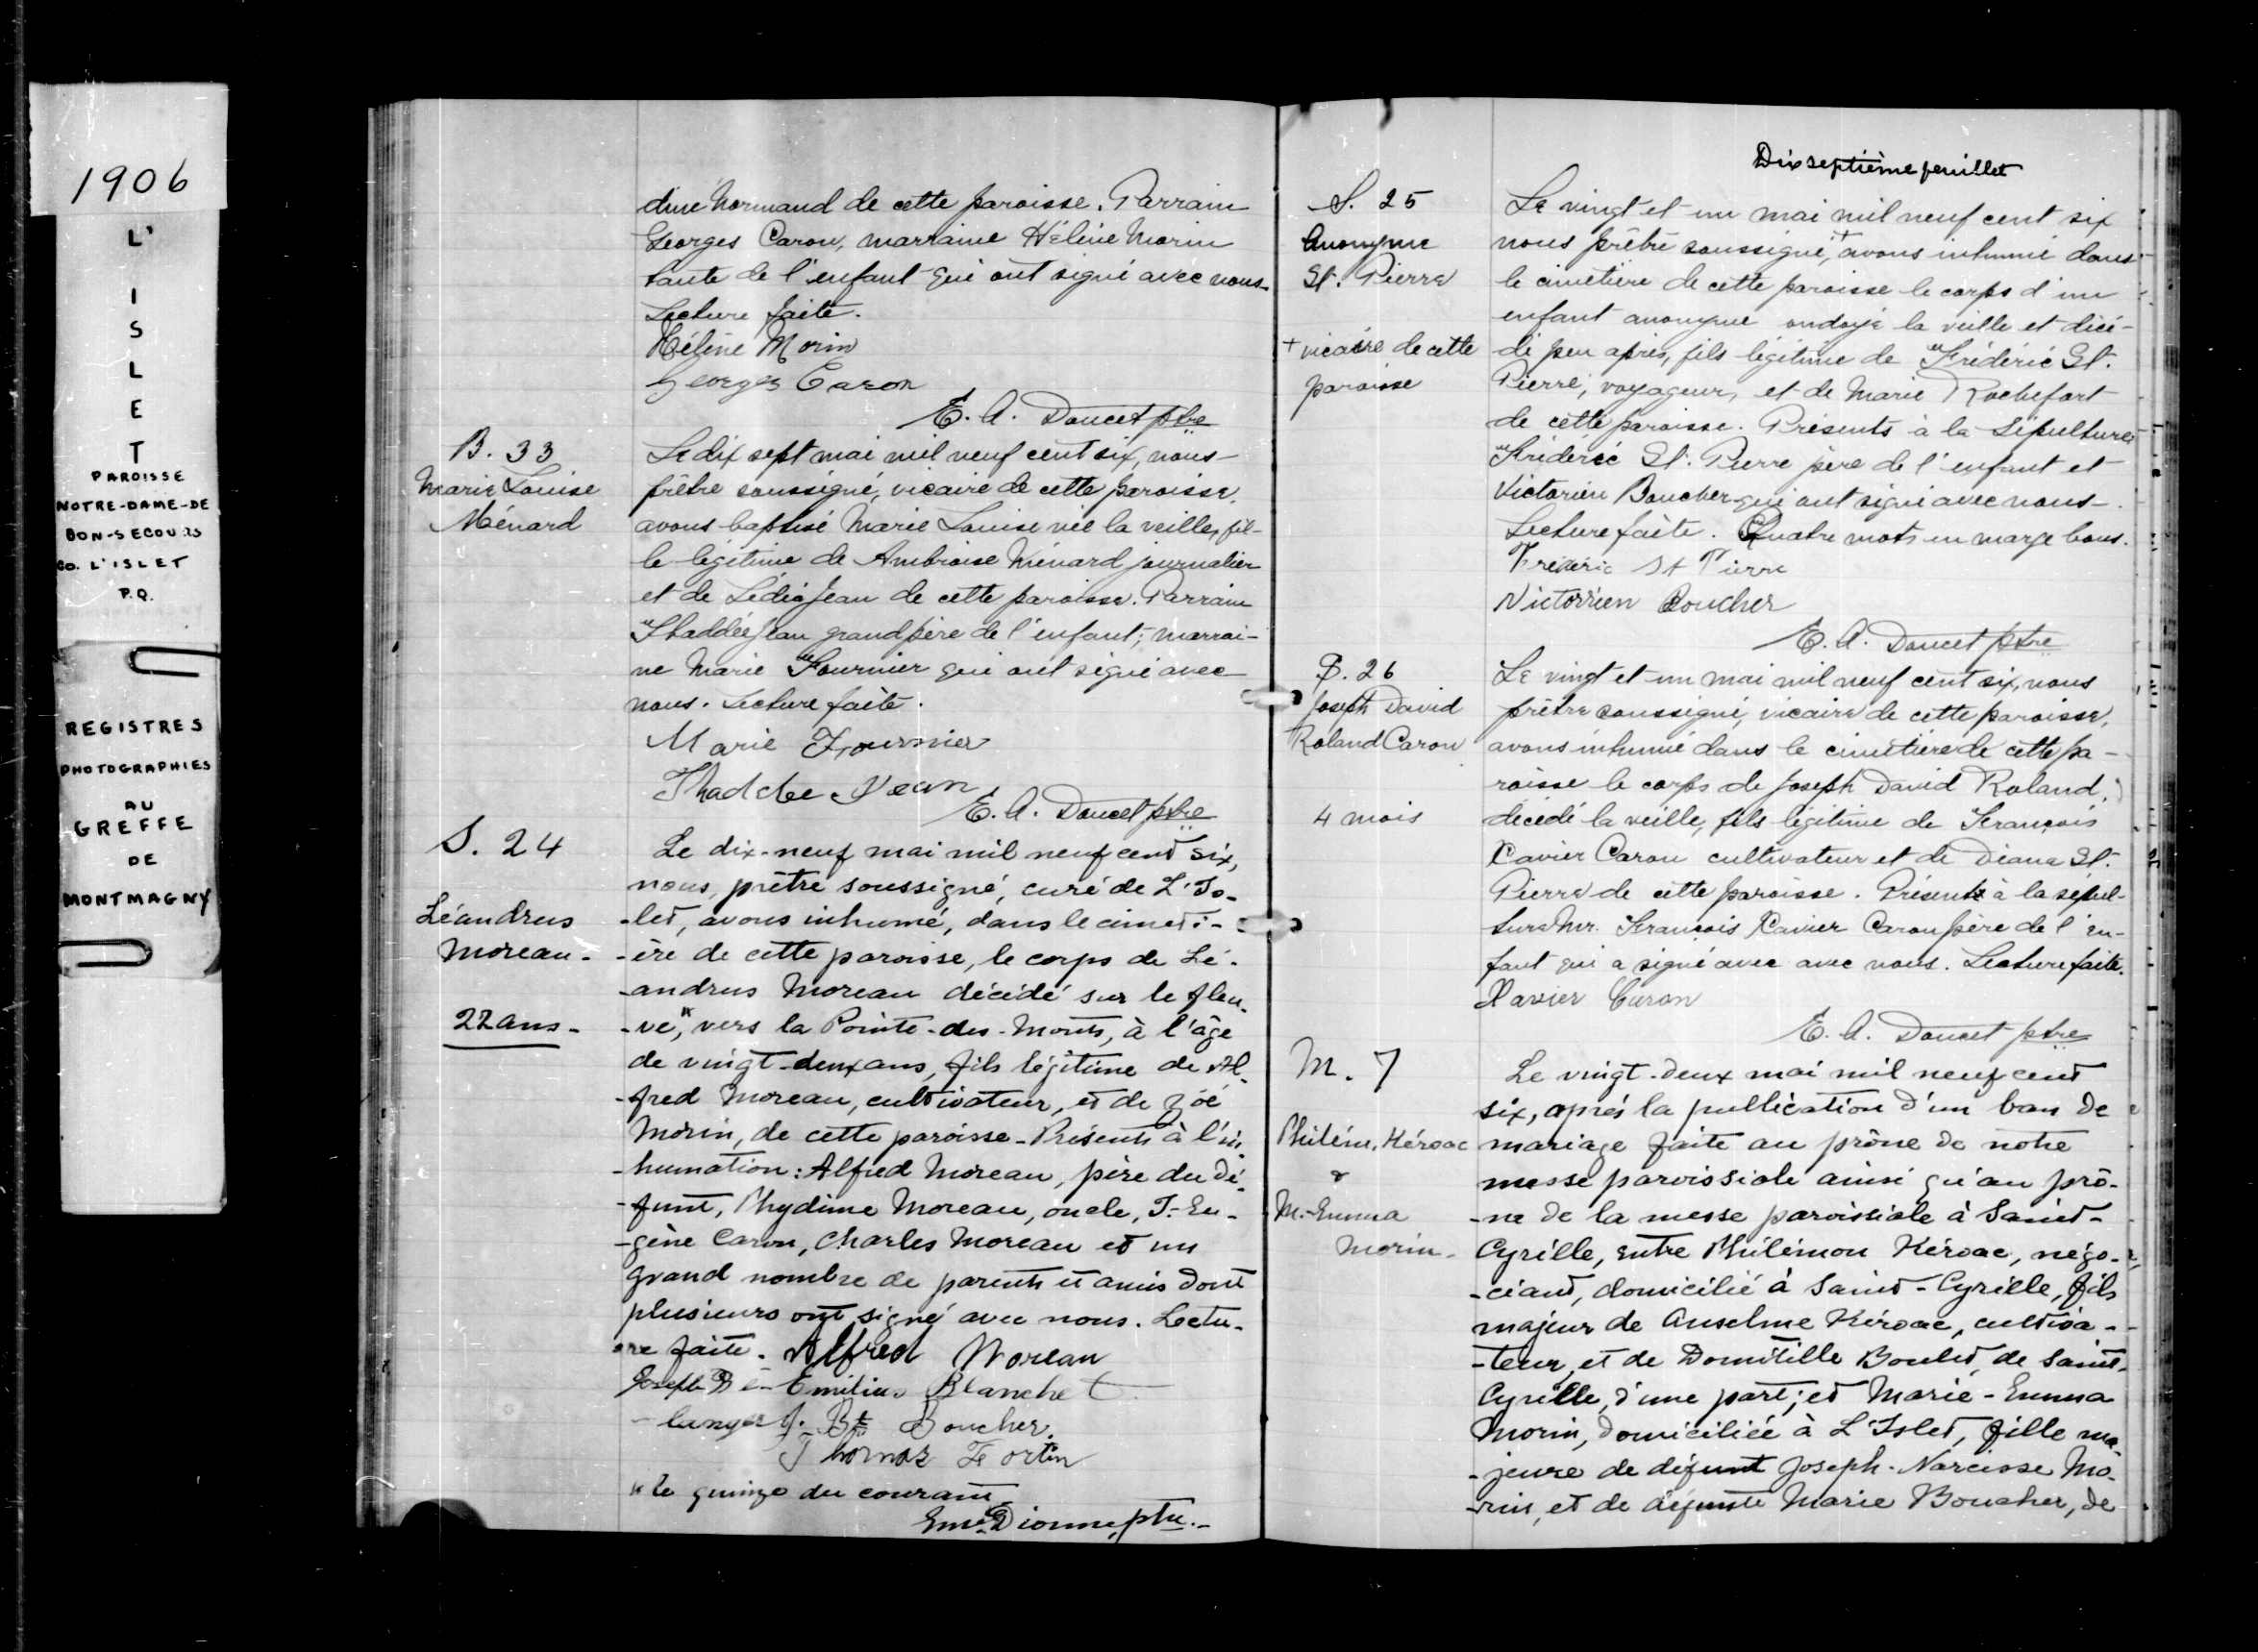 1906
L'
I
S
L
E
T
PAROISSE
NOTRE-DAME-DE
BON-SECOURS
Co. L'ISLET
P.Q.
REGISTRES
PHOTOGRAPHIES
AU
GREFFE
DE
MONTMAGNY
dine Normand de cette paroisse. Parrain
Georges Caron, marraine Hélène Morin
tante de l'enfant qui ont signé avec nous.
Lecture faite.
Hélène Morin
Georges Caron
E. A. Doucet ptre
B. 33
Marie Louise
Ménard
Le dix sept mai mil neuf cent six, nous
prêtre soussigné, vicaire de cette paroisse,
avons baptisé Marie Louise née la veille, fil-
le légitime de Ambroise Ménard journalier
et de Lédia Jean de cette paroisse. Parrain
Thaddée Jean grand père de l'enfant; marrai-
ne Marie Fournier qui ont signé avec
nous. Lecture faite.
Marie Fournier
Thaddee Jean
E. A. Doucet ptre
S. 24
Léandrus
Moreau -
22 ans -
Le dix-neuf mai mil neuf cent six,
nous, prêtre soussigné, curé de L'Is-
-let, avons inhumé, dans le cimeti-
-ère de cette paroisse, le corps de Lé-
-andrus Moreau décédé sur le fleu-
-ve, vers la Pointe-des-Monts, à l'âge
de vingt-deux ans, fils légitime de Al-
-fred Moreau, cultivateur, et de Zoé
Morin, de cette paroisse - Présents à l'in-
-humation: Alfred Moreau, père du dé-
-funt, Phydime Moreau, oncle, J.-Eu-
-gène Caron, Charles Moreau et un
grand nombre de parents et amis dont
plusieurs ont signé avec nous. Lectu-
-re faite. Alfred Moreau
Joseph Bé- Emilius Blanchet
- langer J. Bte Boucher
Thomas Fortin
" le quinze du courant
Em. Dionne, ptre.-
Dix septième feuillet
S. 25
Anonyme
St. Pierre
+ vicaire de cette
paroisse
Le vingt et un mai mil neuf cent six
nous prêtre soussigné,+ avons inhumé dans
le cimetière de cette paroisse le corps d'un
enfant anonyme ondoyé la veille et décé-
dé peu après, fils légitime de Frédéric St.
Pierre, voyageur, et de Marie Rochefort
de cette paroisse. Présents à la sépulture
Frédéric St. Pierre père de l'enfant et
Victorien Boucher qui ont signé avec nous.
Lecture faite. Quatre mots en marge bons.
Frederic St Pierre
Victorrien Boucher
E. A. Doucet ptre
S. 26
Joseph David
Roland Caron
4 mois
Le vingt et un mai mil neuf cent six, nous
prêtre soussigné, vicaire de cette paroisse,
avons inhumé dans le cimetière de cette pa-
roisse le corps de Joseph David Roland,
décédé la veille, fils légitime de François
Xavier Caron cultivateur et de Diana St.
Pierre de cette paroisse. Présent à la sépul-
ture Mr. François Xavier Caron père de l'en-
fant qui a signé avec avec nous. Lecture faite.
Xavier Caron
E. A. Doucet ptre
M. 7
Philém. Kéroac
&
M.-Emma
Morin -
Le vingt-deux mai mil neuf cent
six, après la publication d'un ban de
mariage faite au prône de notre
messe paroissiale ainsi qu'au prô-
-ne de la messe paroissiale à Saint-
Cyrille, entre Philémon Kéroac, négo-
-ciant, domicilié à Saint-Cyrille, fils
majeur de Anselme Kéroac, cultiva-
-teur, et de Domitille Boulet, de Saint-
Cyrille, d'une part; et Marie-Emma
Morin, domiciliée à L'Islet, fille ma-
-jeure de défunt Joseph-Narcisse Mo-
-rin, et de défunte Marie Boucher, de